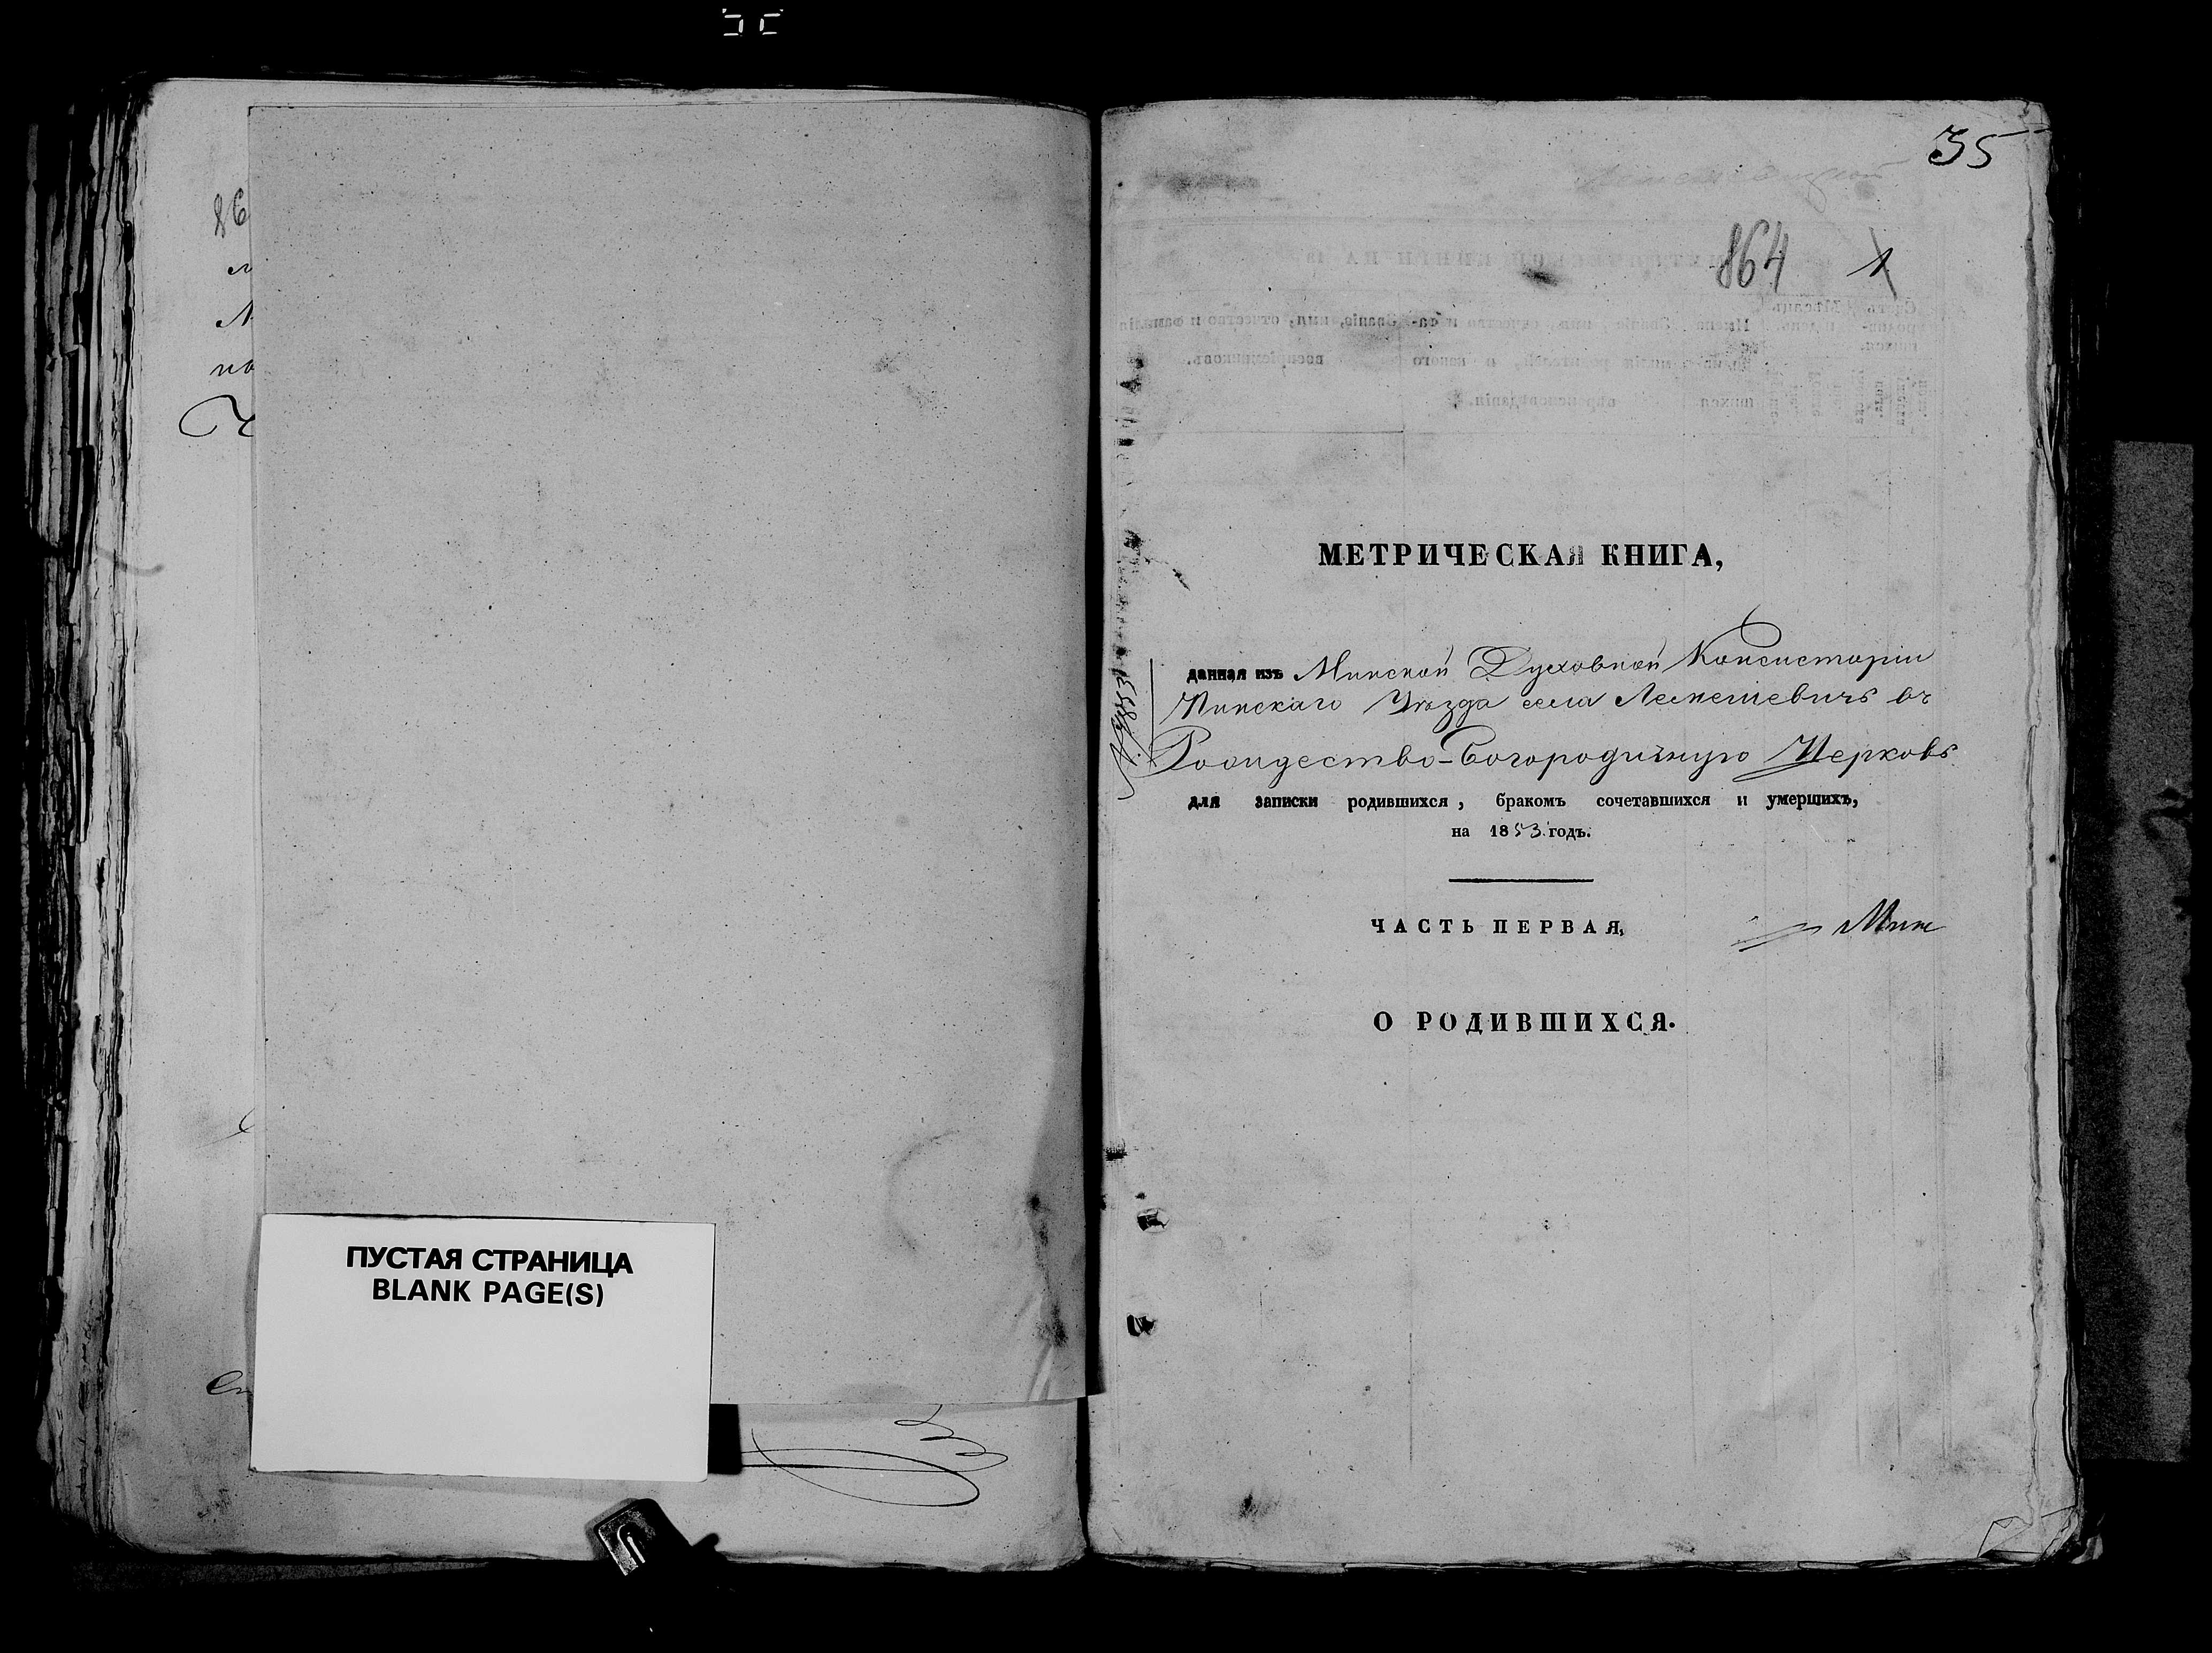 35
864 1
МЕТРИЧЕСКАЯ КНИГА,
данная изъ Минской Духовной Консисторіи
Пинскаго Уѣзда села Лемешевичъ въ
Рождество-Богородичную Церковь
для записки родившихся, бракомъ сочетавшихся и умершихъ,
на 1853 годъ.
ЧАСТЬ ПЕРВАЯ,
Мин
О РОДИВШИХСЯ.
ПУСТАЯ СТРАНИЦА
BLANK PAGE(S)